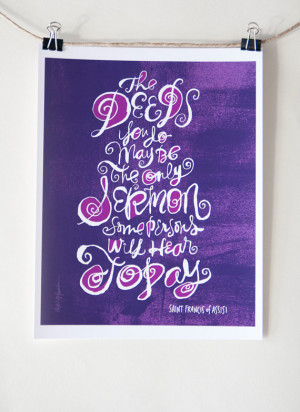 The
DEEDS
you do
MAY BE
The only
SERMON
some persons
will Hear
TODAY
SAINT FRANCIS of ASSISI